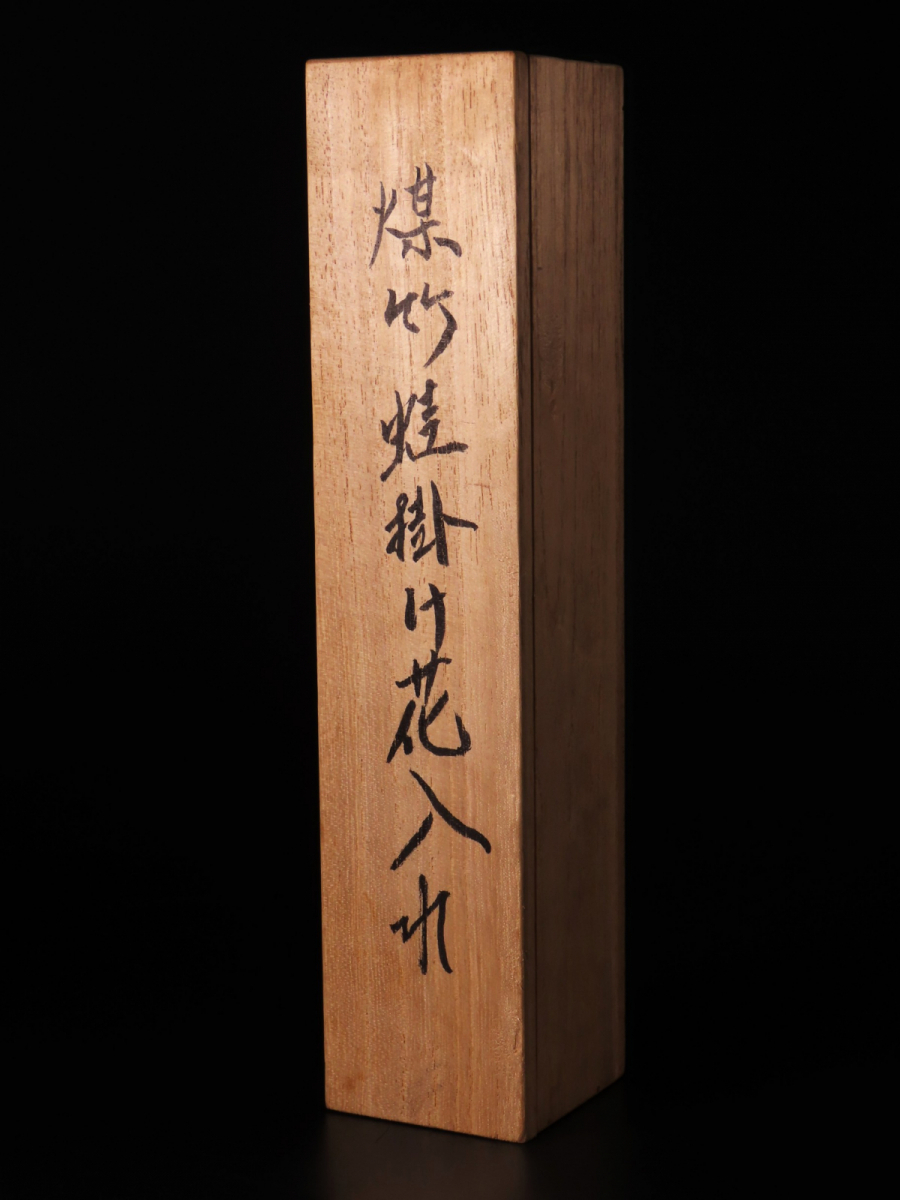 煤竹蛙掛け花入れ